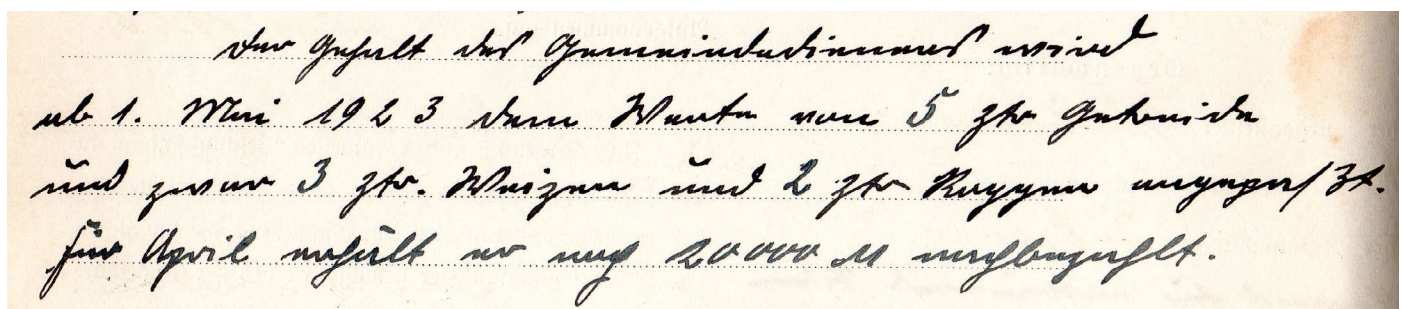 Der Gehalt des Gemeindedieners wird
ab 1. Mai 1923 dem Werte von 5 Ztr Getreide
und zwar 3 Ztr. Weizen und 2 Ztr Roggen angepaßt.
für April erhält er noch 20000 M nachbezahlt.